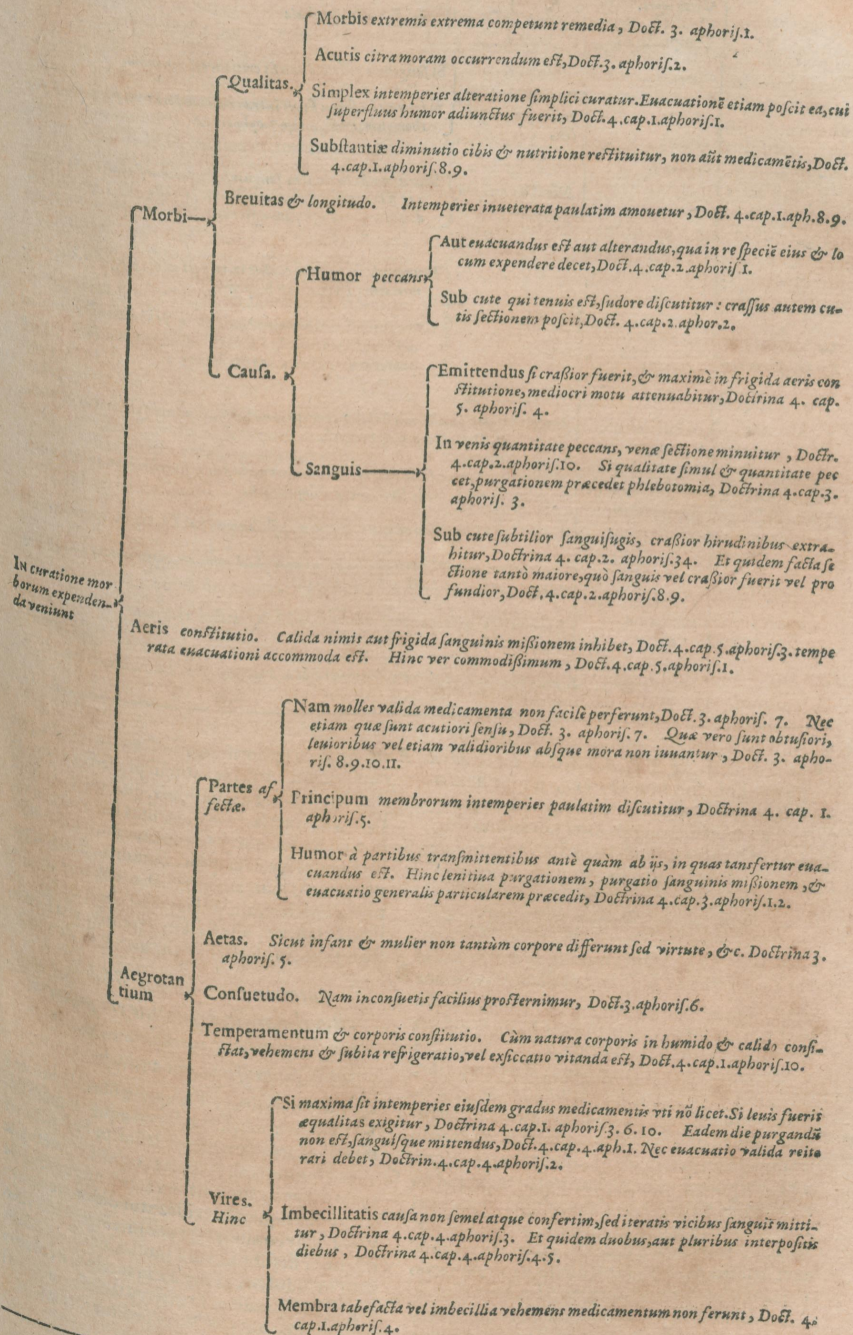 Morbis extremis extrema competunt remedia, Doct. 3. aphoriſ.1.
Qualitas.
Acutis citra moram occurrendum eſt, Doct.3. aphoriſ.2.
Simplex intemperies alteratione ſimplici curatur. Euacuationẽ etiam poſcit ea, cui
ſuperfluus humor adiunctus fuerit, Doct.4.cap.1.aphoriſ.1.
Subſtantiæ diminutio cibis & nutritione reſtituitur, non aũt medicamẽtis, Doct.
4.cap.1.aphoriſ.8.9.
Morbi
Breuitas & longitudo. Intemperies inueterata paulatim amouetur, Doct. 4.cap.1.aph.8.9.
Cauſa.
Humor peccans
Aut euacuandus eſt aut alterandus, qua in re ſpeciẽ eius & lo
cum expendere decet, Doct.4.cap.2.aphoriſ.1.
Sub cute qui tenuis eſt, ſudore diſcutitur: craſſus autem cu-
tis ſectionem poſcit, Doct. 4.cap.2.aphor.2.
Sanguis
Emittendus ſi craßior fuerit, & maximè in frigida aeris con
ſtitutione, mediocri motu attenuabitur, Doctrina 4. cap.
5. aphoriſ. 4.
In venis quantitate peccans, venæ ſectione minuitur, Doctr.
4.cap.2.aphoriſ.10. Si qualitate ſimul & quantitate pec
cet, purgationem præcedet phlebotomia, Doctrina 4.cap.3.
aphoriſ. 3.
Sub cute ſubtilior ſanguiſugis, craßior hirudinibus extra-
hitur, Doctrina 4. cap.2. aphoriſ.34. Et quidem facta ſe
ctione tantò maiore, quò ſanguis vel craßior fuerit vel pro
fundior, Doct.4.cap.2.aphoriſ.8.9.
IN curatione mor
borum expenden-
da veniunt
Aeris conſtitutio. Calida nimis aut frigida ſanguinis mißionem inhibet, Doct.4.cap.5.aphoriſ.3. tempe
rata euacuationi accommoda eſt. Hinc ver commodißimum, Doct.4.cap.5.aphoriſ.1.
Aegrotan
tium
Partes af
fectæ.
Nam molles valida medicamenta non facilè perferunt, Doct.3. aphoriſ. 7. Nec
etiam quæ ſunt acutiori ſenſu, Doct. 3. aphoriſ. 7. Quæ vero ſunt obtuſiori,
leuioribus vel etiam validioribus abſque mora non iuuantur, Doct. 3. apho-
riſ. 8.9.10.11.
Principum membrorum intemperies paulatim diſcutitur, Doctrina 4. cap. 1.
aphoriſ.5.
Humor à partibus tranſmittentibus antè quàm ab ijs, in quas tansfertur eua-
cuandus eſt. Hinc lenitiua purgationem, purgatio ſanguinis mißionem, &
euacuatio generalis particularem præcedit, Doctrina 4.cap.3.aphoriſ.1.2.
Aetas. Sicut infans & mulier non tantùm corpore differunt ſed virtute, &c. Doctrina 3.
aphoriſ. 5.
Conſuetudo. Nam inconſuetis facilius proſternimur, Doct.3.aphoriſ.6.
Temperamentum & corporis conſtitutio. Cùm natura corporis in humido & calido conſi-
ſtat, vehemens & ſubita refrigeratio, vel exſiccatio vitanda eſt, Doct.4.cap.1.aphoriſ.10.
Vires.
Hinc
Si maxima ſit intemperies eiuſdem gradus medicamentis vti nõ licet. Si leuis fuerit
æqualitas exigitur, Doctrina 4.cap.1. aphoriſ.3.6.10. Eadem die purgandũ
non eſt, ſanguiſque mittendus, Doct.4.cap.4.aph.1. Nec euacuatio valida reite
rari debet, Doctrin.4.cap.4.aphoriſ.2.
Imbecillitatis cauſa non ſemel atque confertim, ſed iteratis vicibus ſanguis mitti-
tur, Doctrina 4.cap.4.aphoriſ.3. Et quidem duobus, aut pluribus interpoſitis
diebus, Doctrina 4.cap.4.aphoriſ.4.5.
Membra tabefacta vel imbecillia vehemens medicamentum non ferunt, Doct. 4.
cap.1.aphoriſ.4.